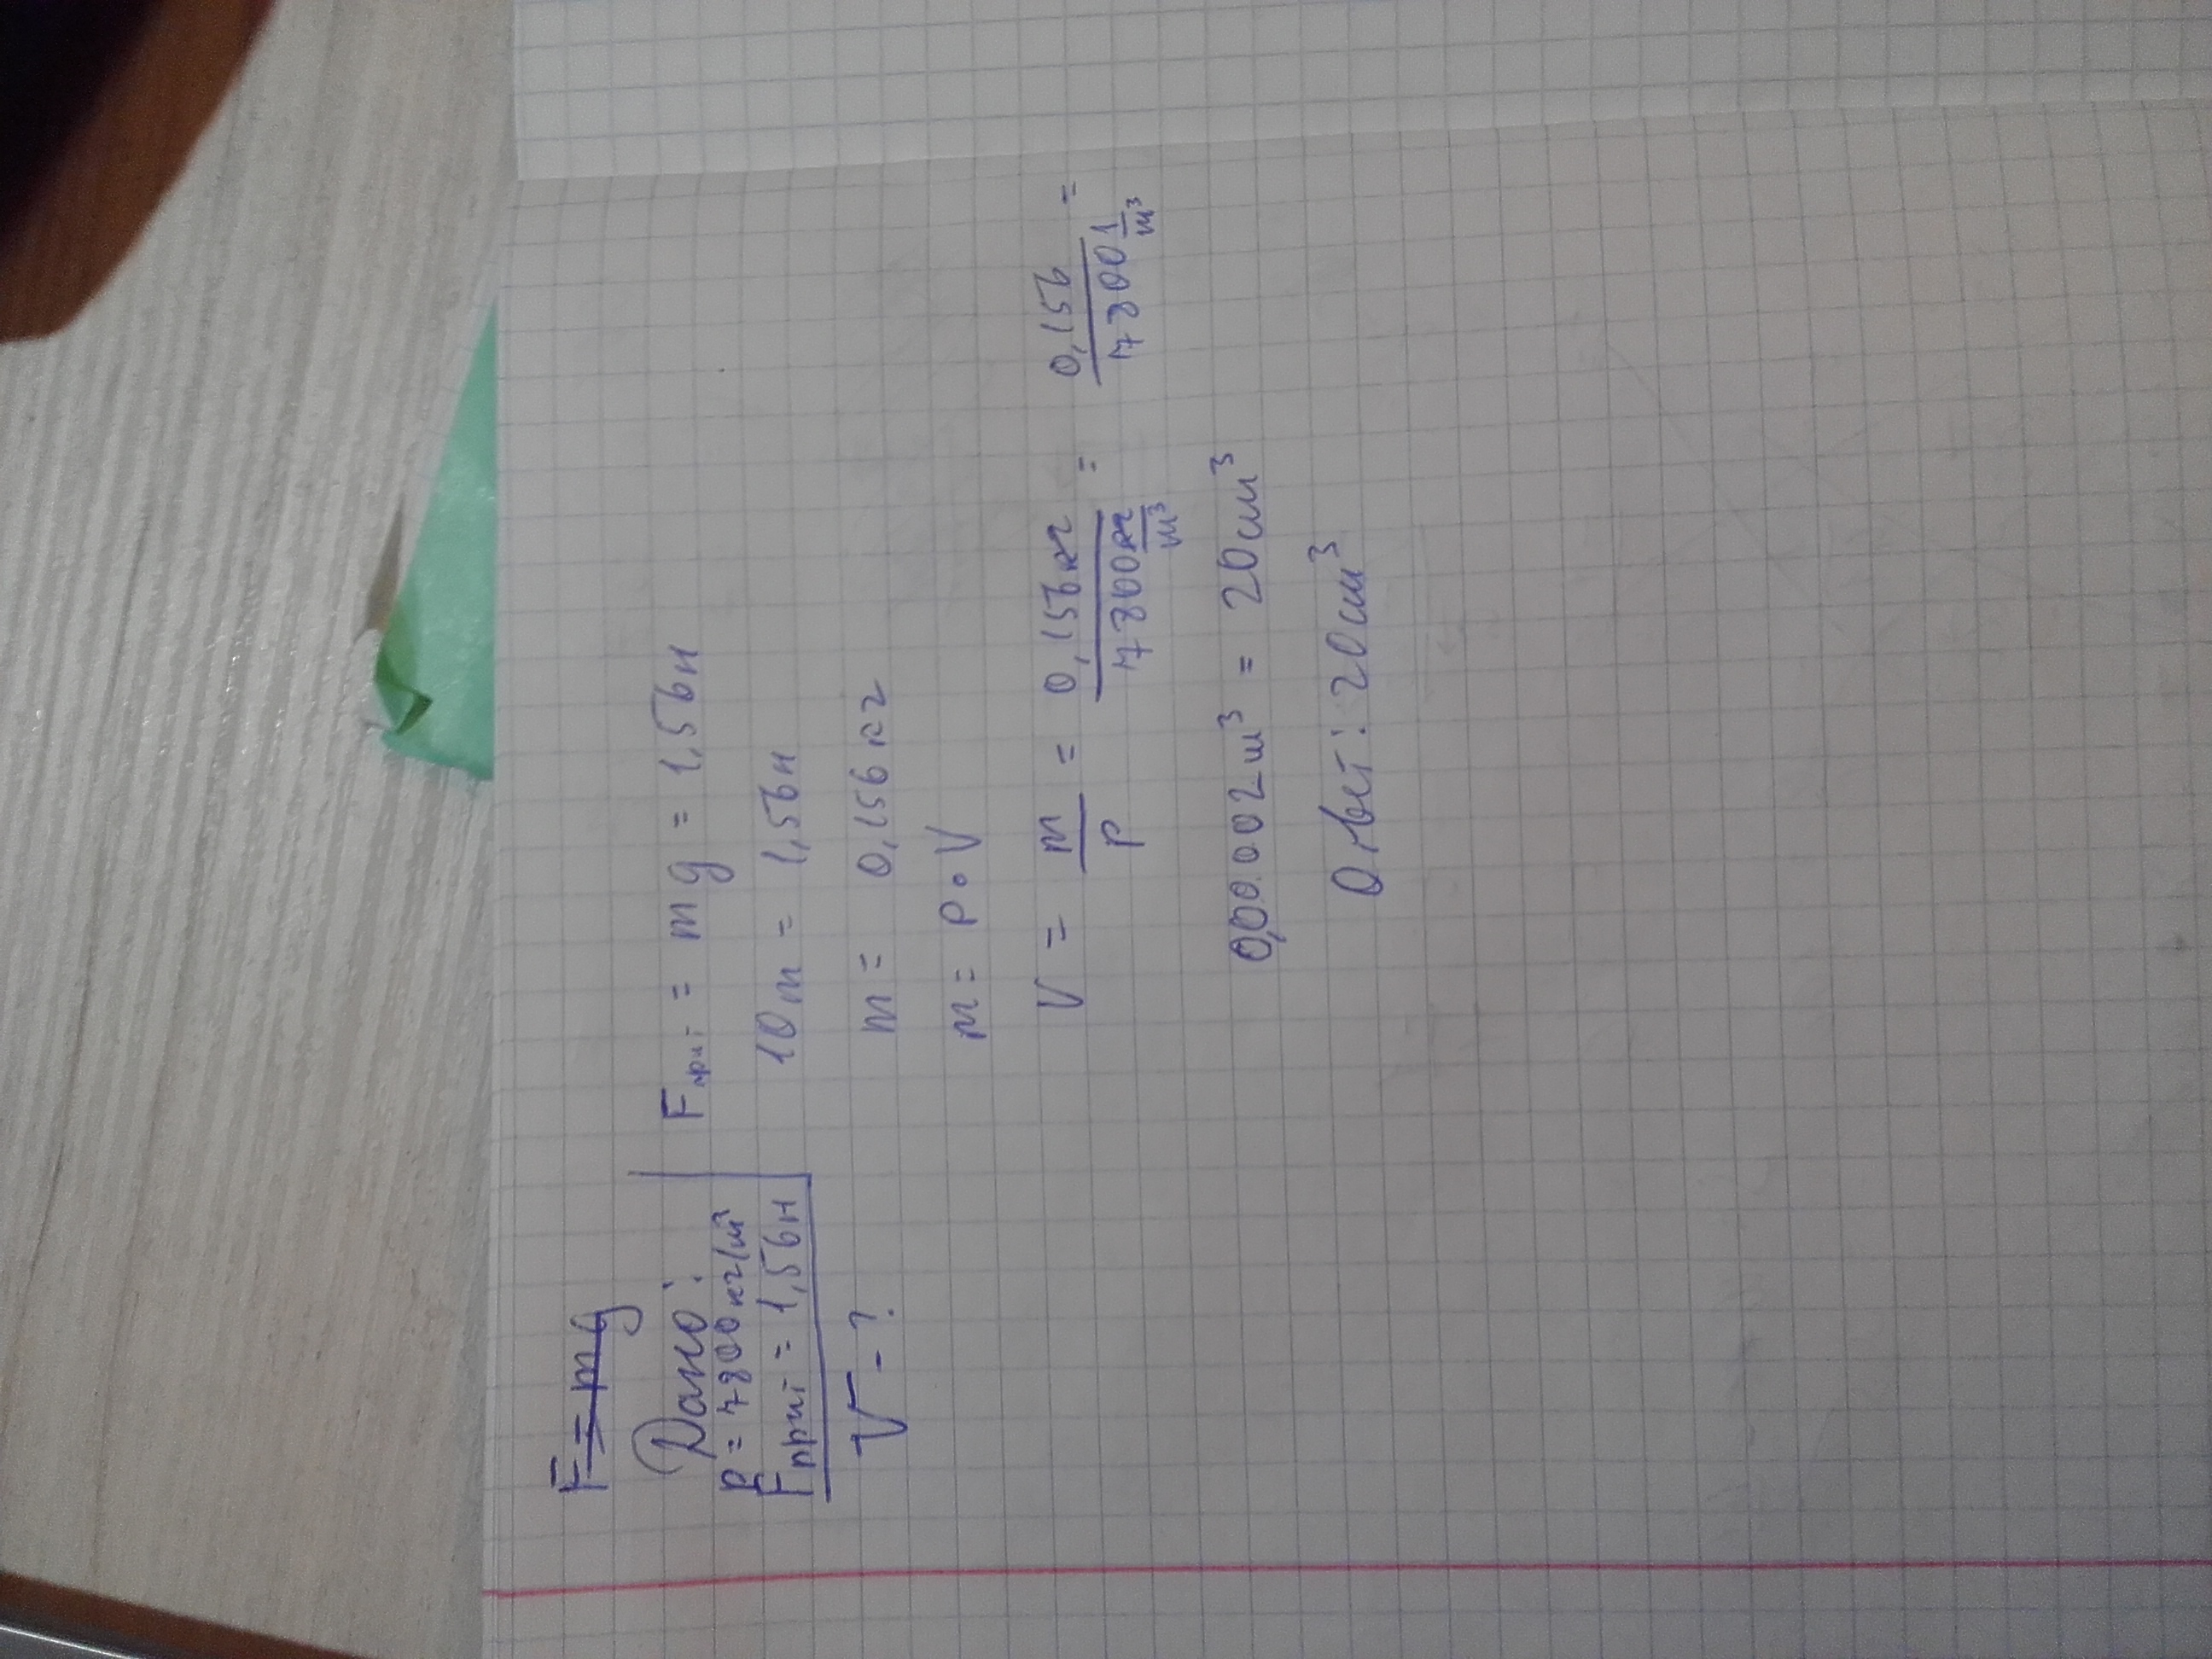 F=mg
Дано:
p=7800кг/м³
Fприт=1,56н
V-?
Fприт = mg = 1,56н
10m = 1,56н
m = 0,156кг
m = p•V
V = m/p = 0,156кг/7800кг/м³ = 0,156/7800 1/м³ =
0,00002м³ = 20см³
Ответ: 20см³